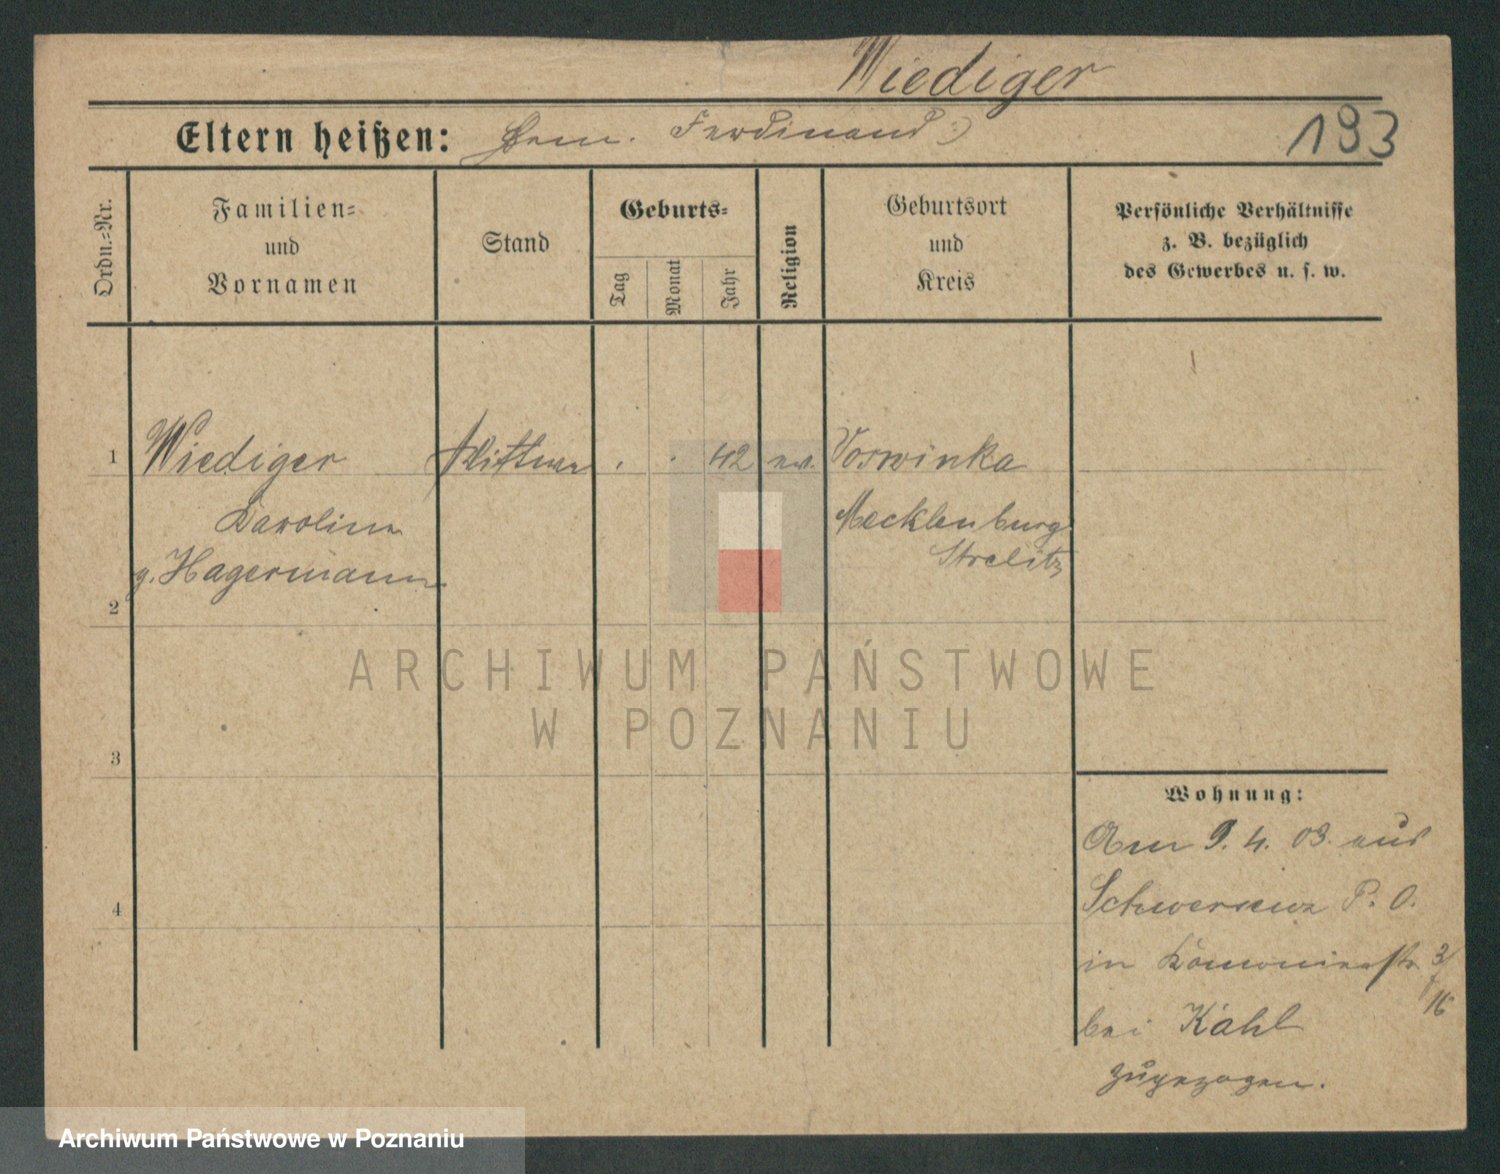 Wiediger
Eltern heißen: Ferdinand
193
Ordn.=Nr.
Familien=
und
Vornamen
Stand
Geburts=
Tag
Monat
Jahr
Religion
Geburtsort
und
Kreis
Persönliche Verhältnisse
z. B. bezüglich
des Gewerbes u. s. w.
1 Wiediger Wittwe . . 42 ev. Voswinka
Karoline Mecklenburg
Strelitz
g. Hagermann
2
3
4
Wohnung:
Am 9. 4. 03. aus
Schwersenz P. O.
in
bei Kahl
zugezogen.
ARCHIWUM PAŃSTWOWE
W POZNANIU
Archiwum Państwowe w Poznaniu